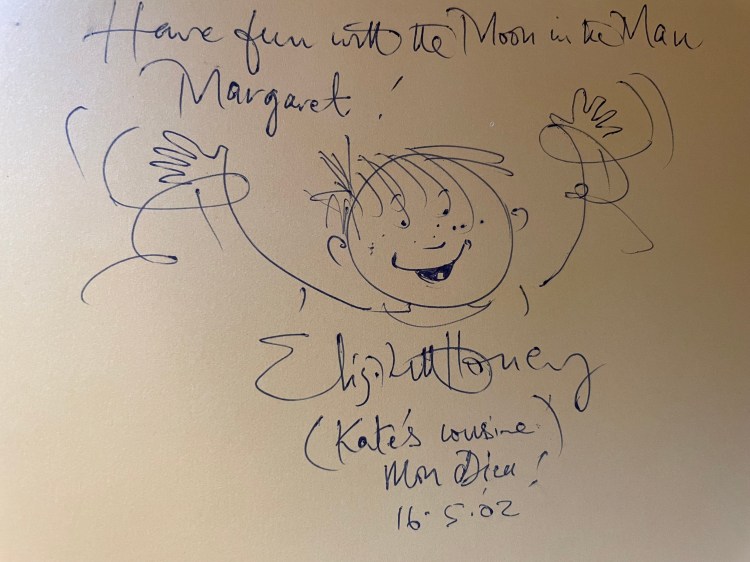 Have fun with the Moon in the Man
Margaret!
Elizabeth Honey
(Kate's cousine)
Mon Dieu!
16.5.02